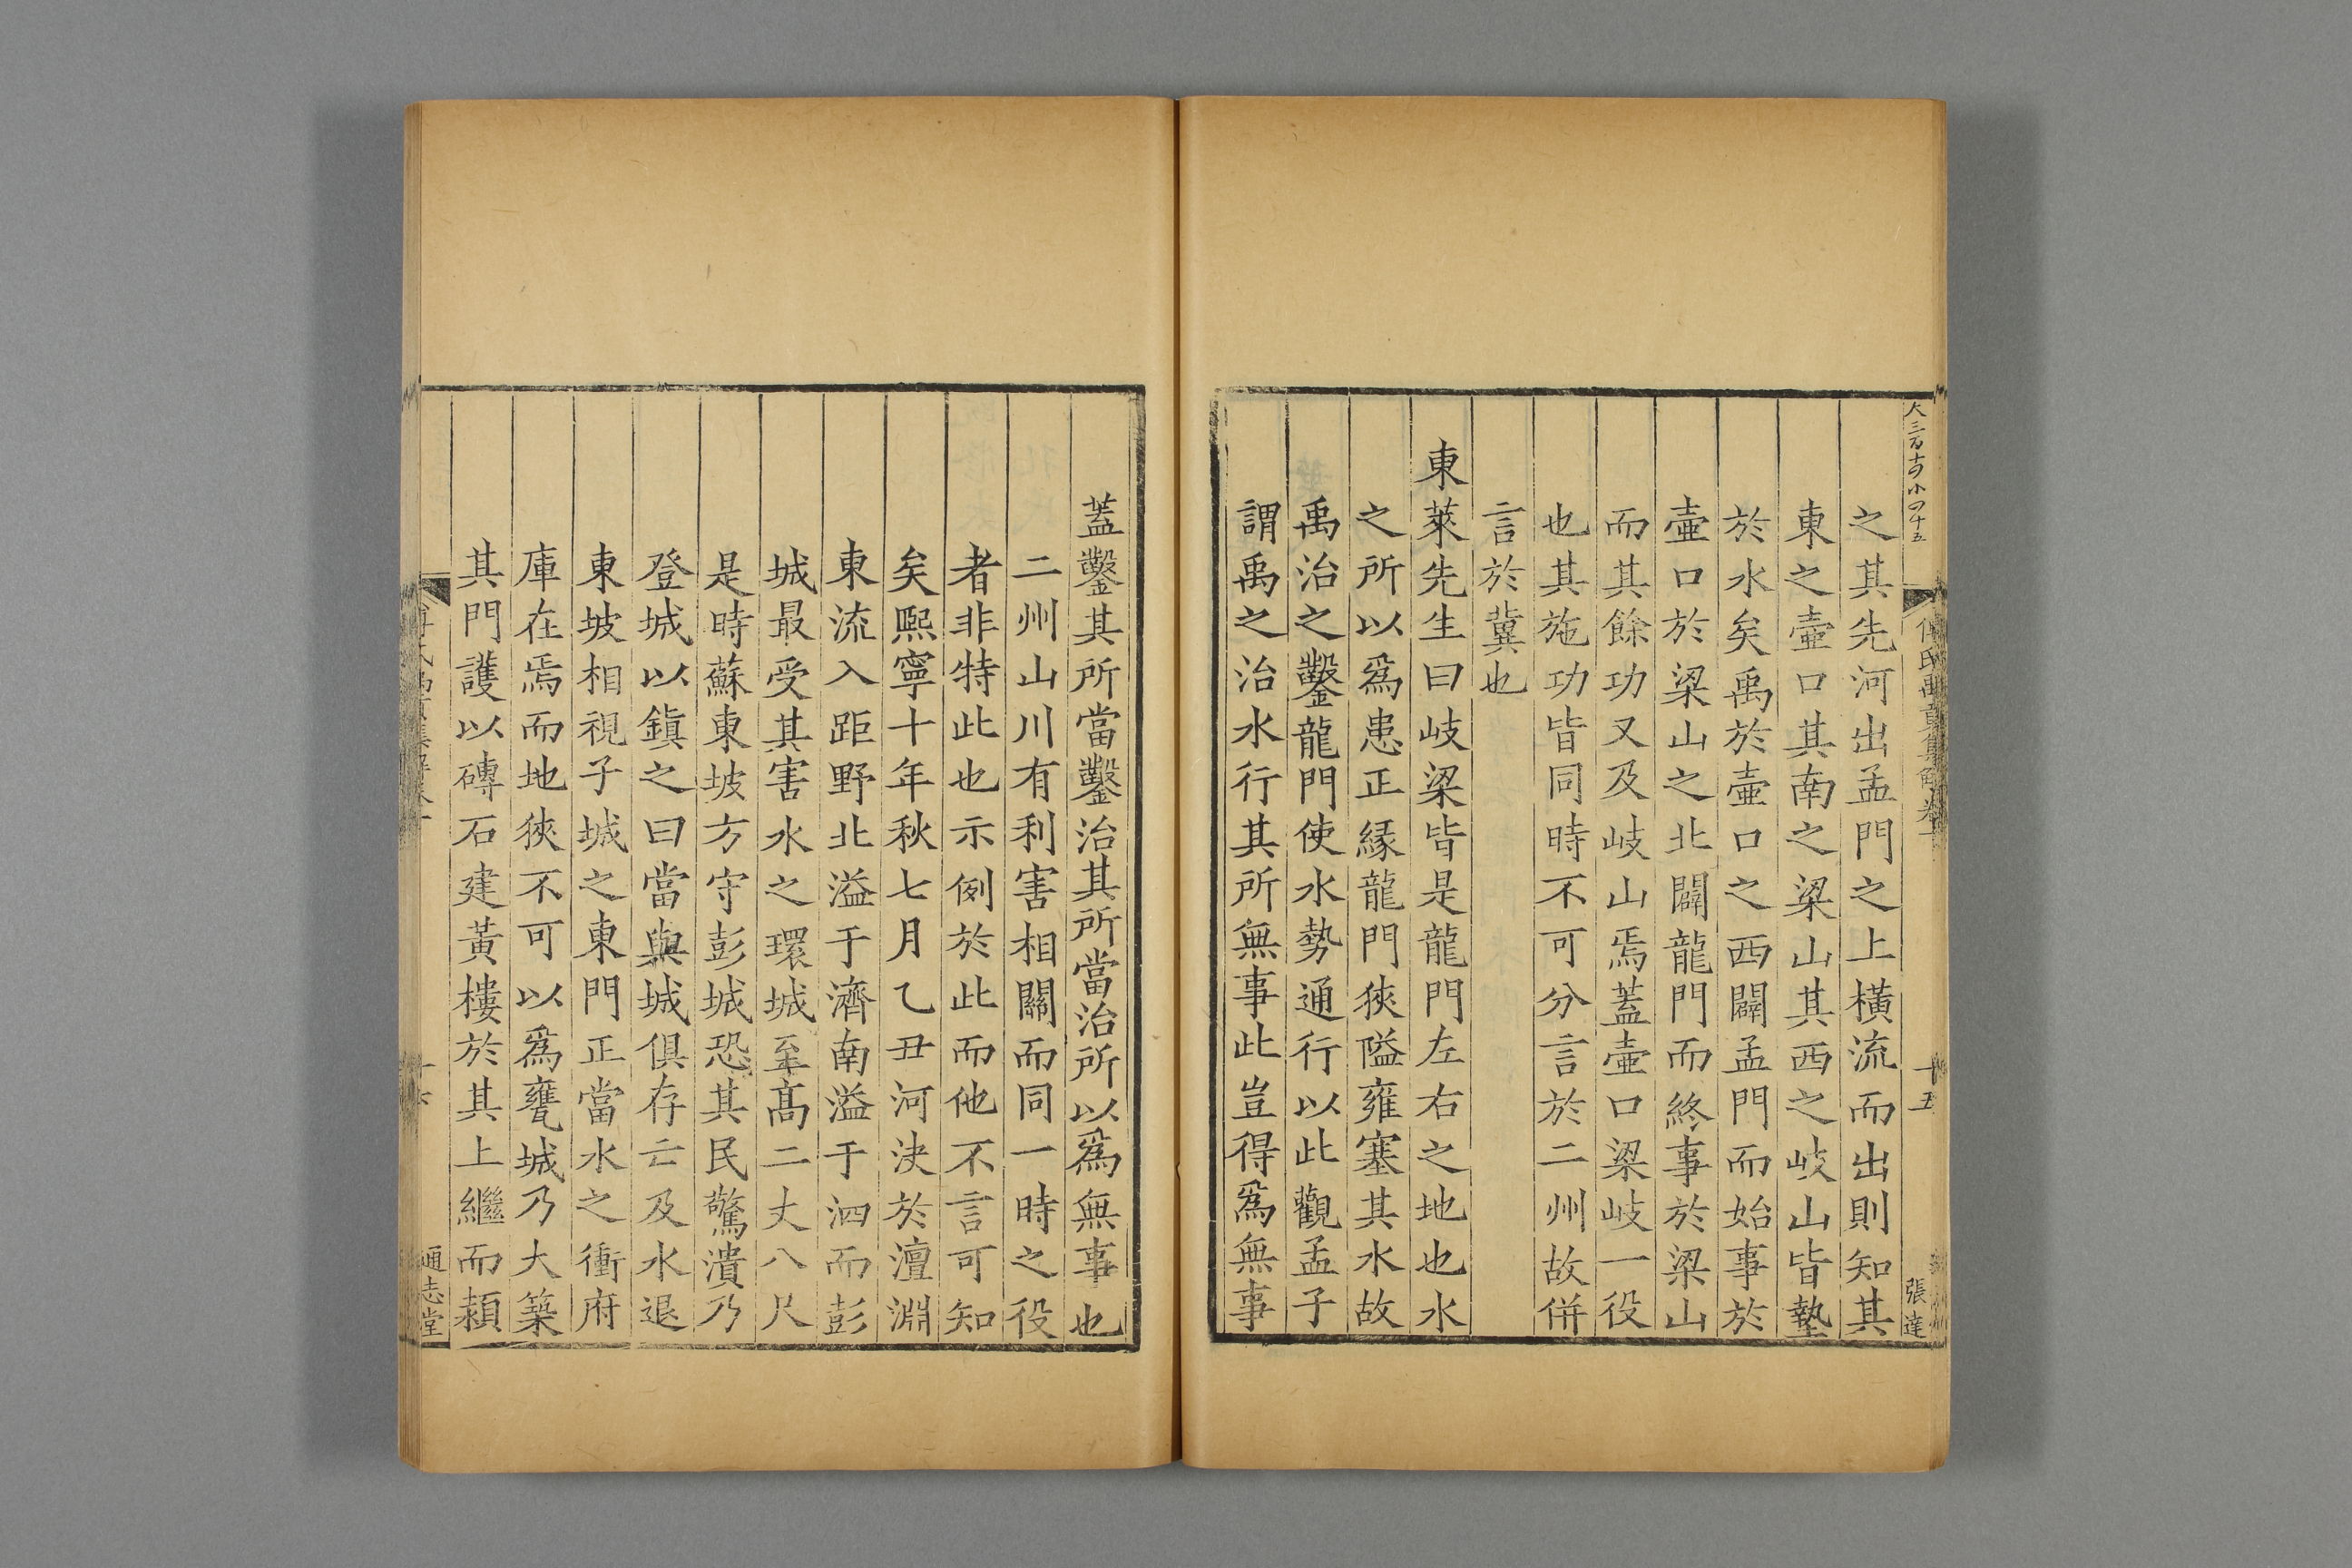 大三百十四小四十五
傅氏禹貢集解卷一
十五
張達
之其先河出孟門之上橫流而出則知其
東之壷口其南之梁山其西之岐山皆墊
於水矣禹於壷口之西闢孟門而始事於
壷口於梁山之北闢龍門而終事於梁山
而其餘功又及岐山焉蓋壷口梁岐一役
也其施功皆同時不可分言於二州故併
言於冀也
東萊先生曰岐梁皆是龍門左右之地也水
之所以爲患正緣龍門狹隘雍塞其水故
禹治之鑿龍門使水勢通行以此觀孟子
謂禹之治水行其所無事此豈得爲無事
蓋鑿其所當鑿治其所當治所以爲無事也
二州山川有利害相關而同一時之役
者非特此也示例於此而他不言可知
矣熙寧十年秋七月乙丑河決於澶淵
東流入距野北溢于濟南溢于泗而彭
城最受其害水之環城至高二丈八尺
是時蘇東坡方守彭城恐其民驚潰乃
登城以鎮之曰當與城俱存亡及水退
東坡相視子城之東門正當水之衝府
庫在焉而地狹不可以爲甕城乃大築
其門護以磚石建黃樓於其上繼而潁
傅氏禹貢集解卷一
十六
通志堂